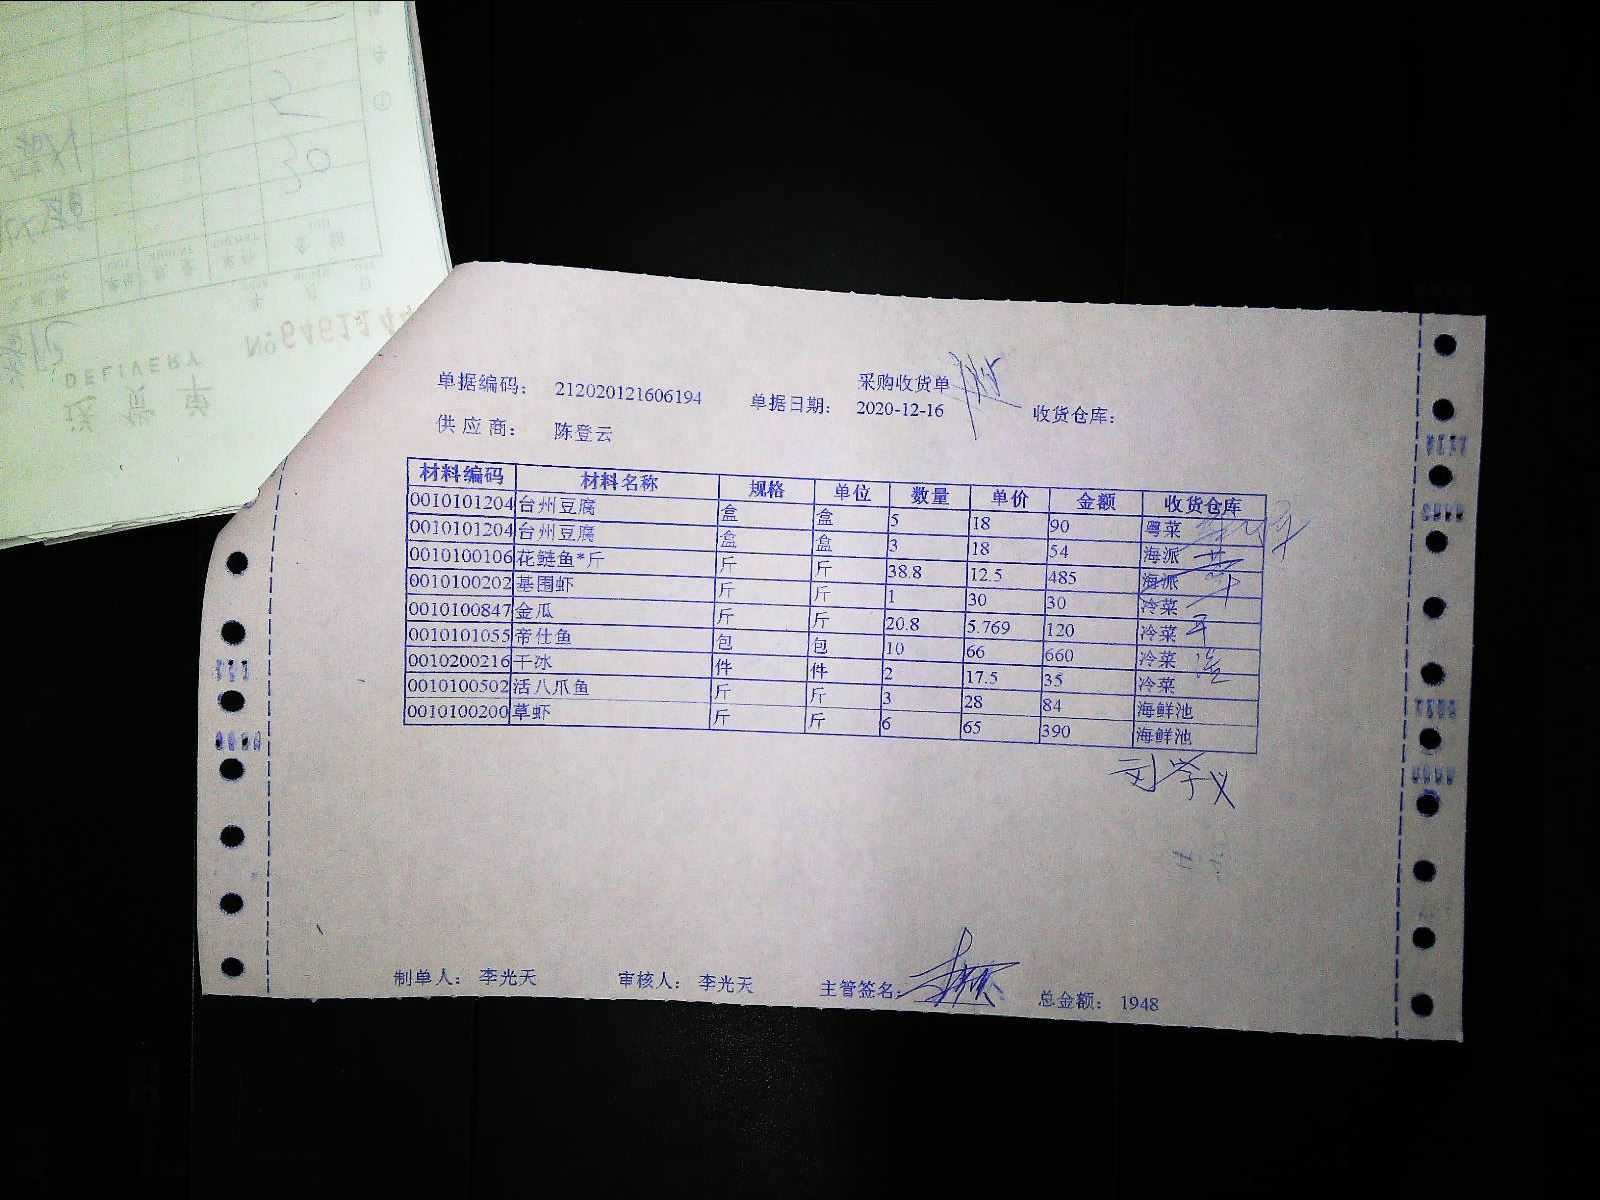 采购收货单
单据编码： 212020121606194 单据日期： 2020-12-16 收货仓库：
供应商： 陈登云
材料编码 材料名称 规格 单位 数量 单价 金额 收货仓库
0010101204 台州豆腐 盒 盒 5 18 90 粤菜
0010101204 台州豆腐 盒 盒 3 18 54 海派
0010100106 花鲢鱼*斤 斤 斤 38.8 12.5 485 海派
0010100202 基围虾 斤 斤 1 30 30 冷菜
0010100847 金瓜 斤 斤 20.8 5.769 120 冷菜
0010101055 帝仕鱼 包 包 10 66 660 冷菜
0010200216 干冰 件 件 2 17.5 35 冷菜
0010100502 活八爪鱼 斤 斤 3 28 84 海鲜池
0010100200 草虾 斤 斤 6 65 390 海鲜池
刘学义
制单人： 李光天 审核人： 李光天 主管签名： 总金额： 1948
30
送货单
DELIVERY